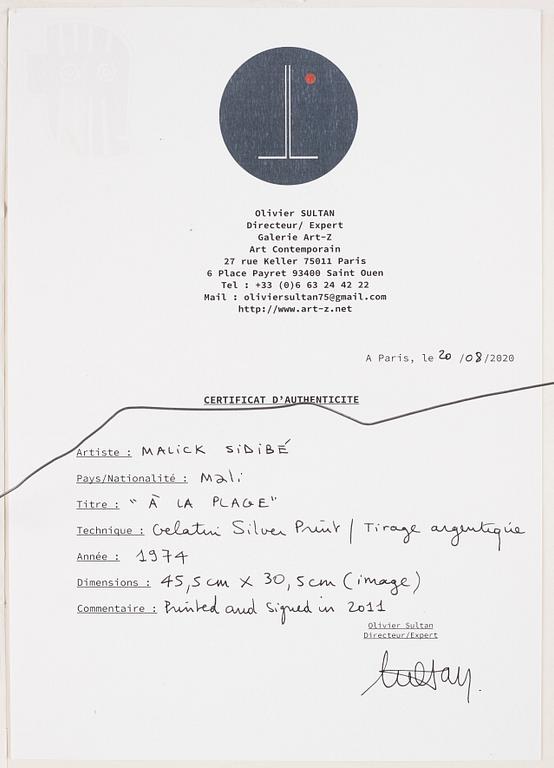 Olivier SULTAN
Directeur/ Expert
Galerie Art-Z
Art Contemporain
27 rue Keller 75011 Paris
6 Place Payret 93400 Saint Ouen
Tel : +33 (0)6 63 24 42 22
Mail : oliviersultan75@gmail.com
http://www.art-z.net
A Paris, le 20 /08/2020
CERTIFICAT D'AUTHENTICITE
Artiste : MALICK SIDIBÉ
Pays/Nationalité : Mali
Titre : "À LA PLAGE"
Technique : Gelatin Silver Print / Tirage argentique
Année : 1974
Dimensions : 45,5 cm X 30,5 cm (image)
Commentaire : Printed and Signed in 2011
Olivier Sultan
Directeur/Expert
Sultan